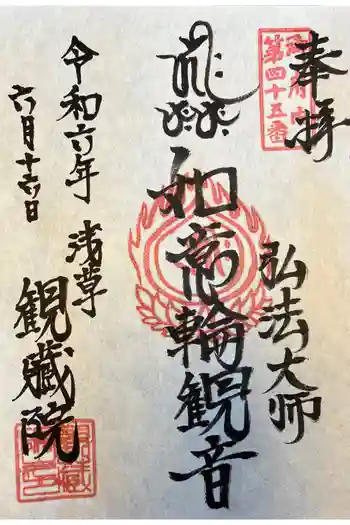 奉拝
第四十五番
弘法大師
如意輪観音
浅草
観蔵院
令和六年
六月十六日